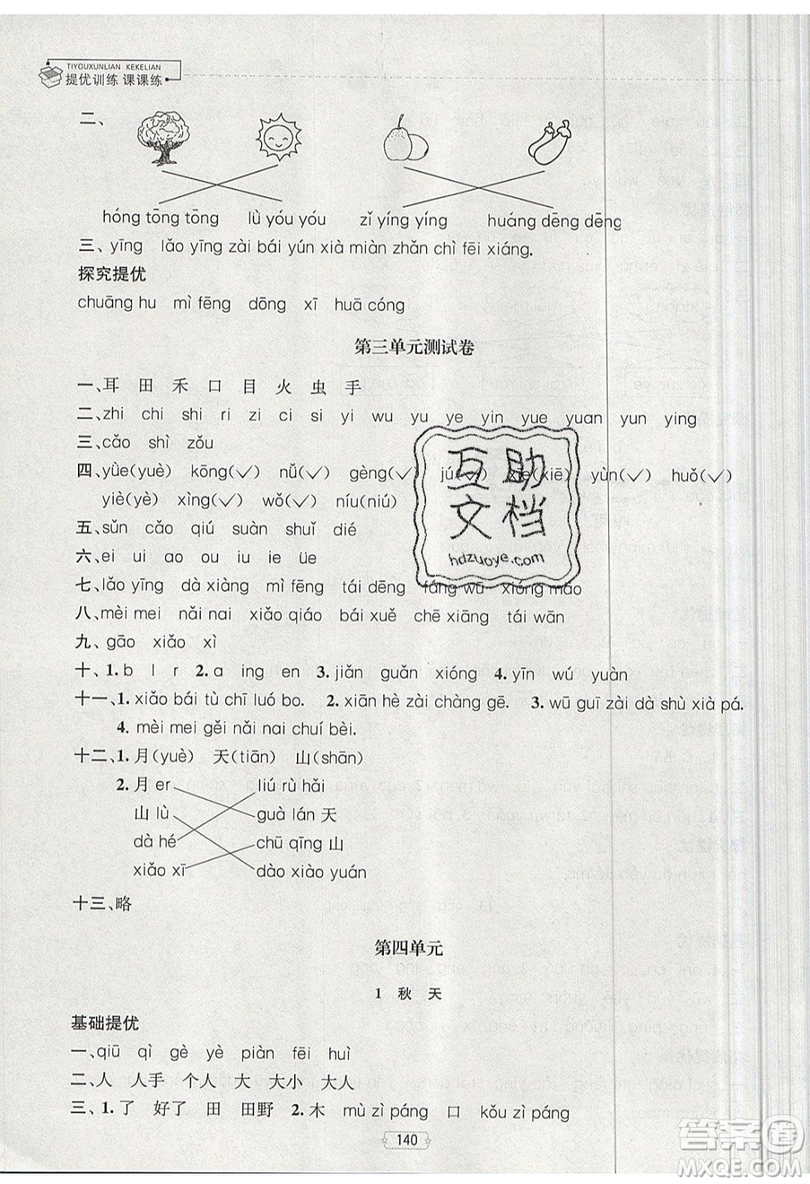 TIYOUXUNLIAN KEKELIAN
提优训练 课课练
二、
hóng tōng tōng lǜ yóu yóu zǐ yíng yíng huáng dēng dēng
三、yīng lǎo yīng zài bái yún xià miàn zhǎn chì fēi xiáng.
探究提优
chuāng hu mì fēng dōng xī huā cóng
第三单元测试卷
一、耳 田 禾 口 目 火 虫 手
二、zhi chi shi ri zi ci si yi wu yu ye yin yue yuan yun ying
三、cǎo shì zǒu
四、yùe(yuè) kōng(✓) nǚ(✓) gèng(✓) jú(✓) xīe(xiē) yùn(✓) huǒ(✓)
yiè(yè) xìng(✓) wǒ(✓) níu(niú)
五、sǔn cǎo qiú suàn shuǐ dié
六、ei ui ao ou iu ie üe
七、lǎo yīng dà xiàng mì fēng tái dēng fáng wū xióng māo
八、mèi mei nǎi nai xiǎo qiáo bái xuě chē xiāng tái wān
九、gāo xiǎo xì
十、1. b l r 2. a ing en 3. jiǎn guǎn xióng 4. yīn wú yuàn
十一、1. xiǎo bái tù chī luó bo. 2. xiān hè zài chàng gē. 3. wū guī zài dà shù xià pá.
4. mèi mei gěi nǎi nai chuí bèi.
十二、1. 月(yuè) 天(tiān) 山(shān)
2. 月 er liú rù hǎi
山 lù guà lán 天
dà hé chū qīng 山
xiǎo xī dào xiào yuán
十三、略
第四单元
1 秋 天
基础提优
一、qiū qì gè yè piàn fēi huì
二、人 人手 个人 大 大小 大人
三、1. 了 好了 田 田野 2. 木 mù zì páng 口 kǒu zì páng
140
互助
文档
hdzuoye.com
答案圈
MXQE.COM